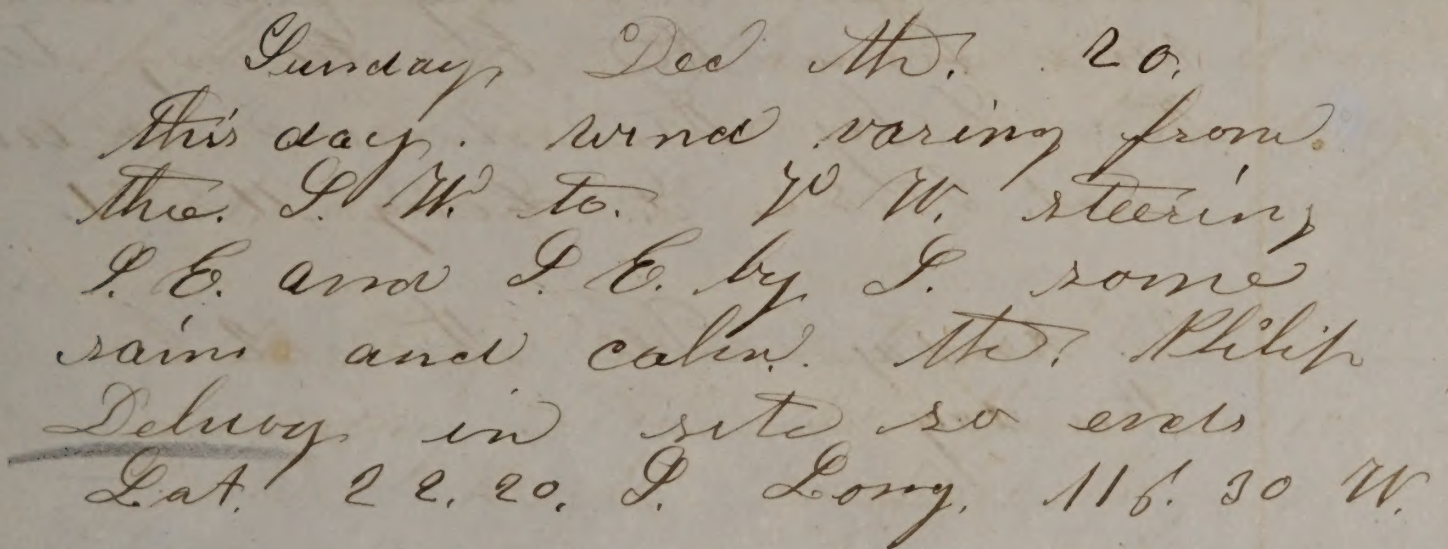 Sunday Dec th. 20.
this day. wind varing from
the. S. W. to. N W. steering
S. E. and S. E. by S. some
rain and calm. the Philip
Delnoy in site so ends
Lat. 22. 20. S. Long. 116. 30 W.